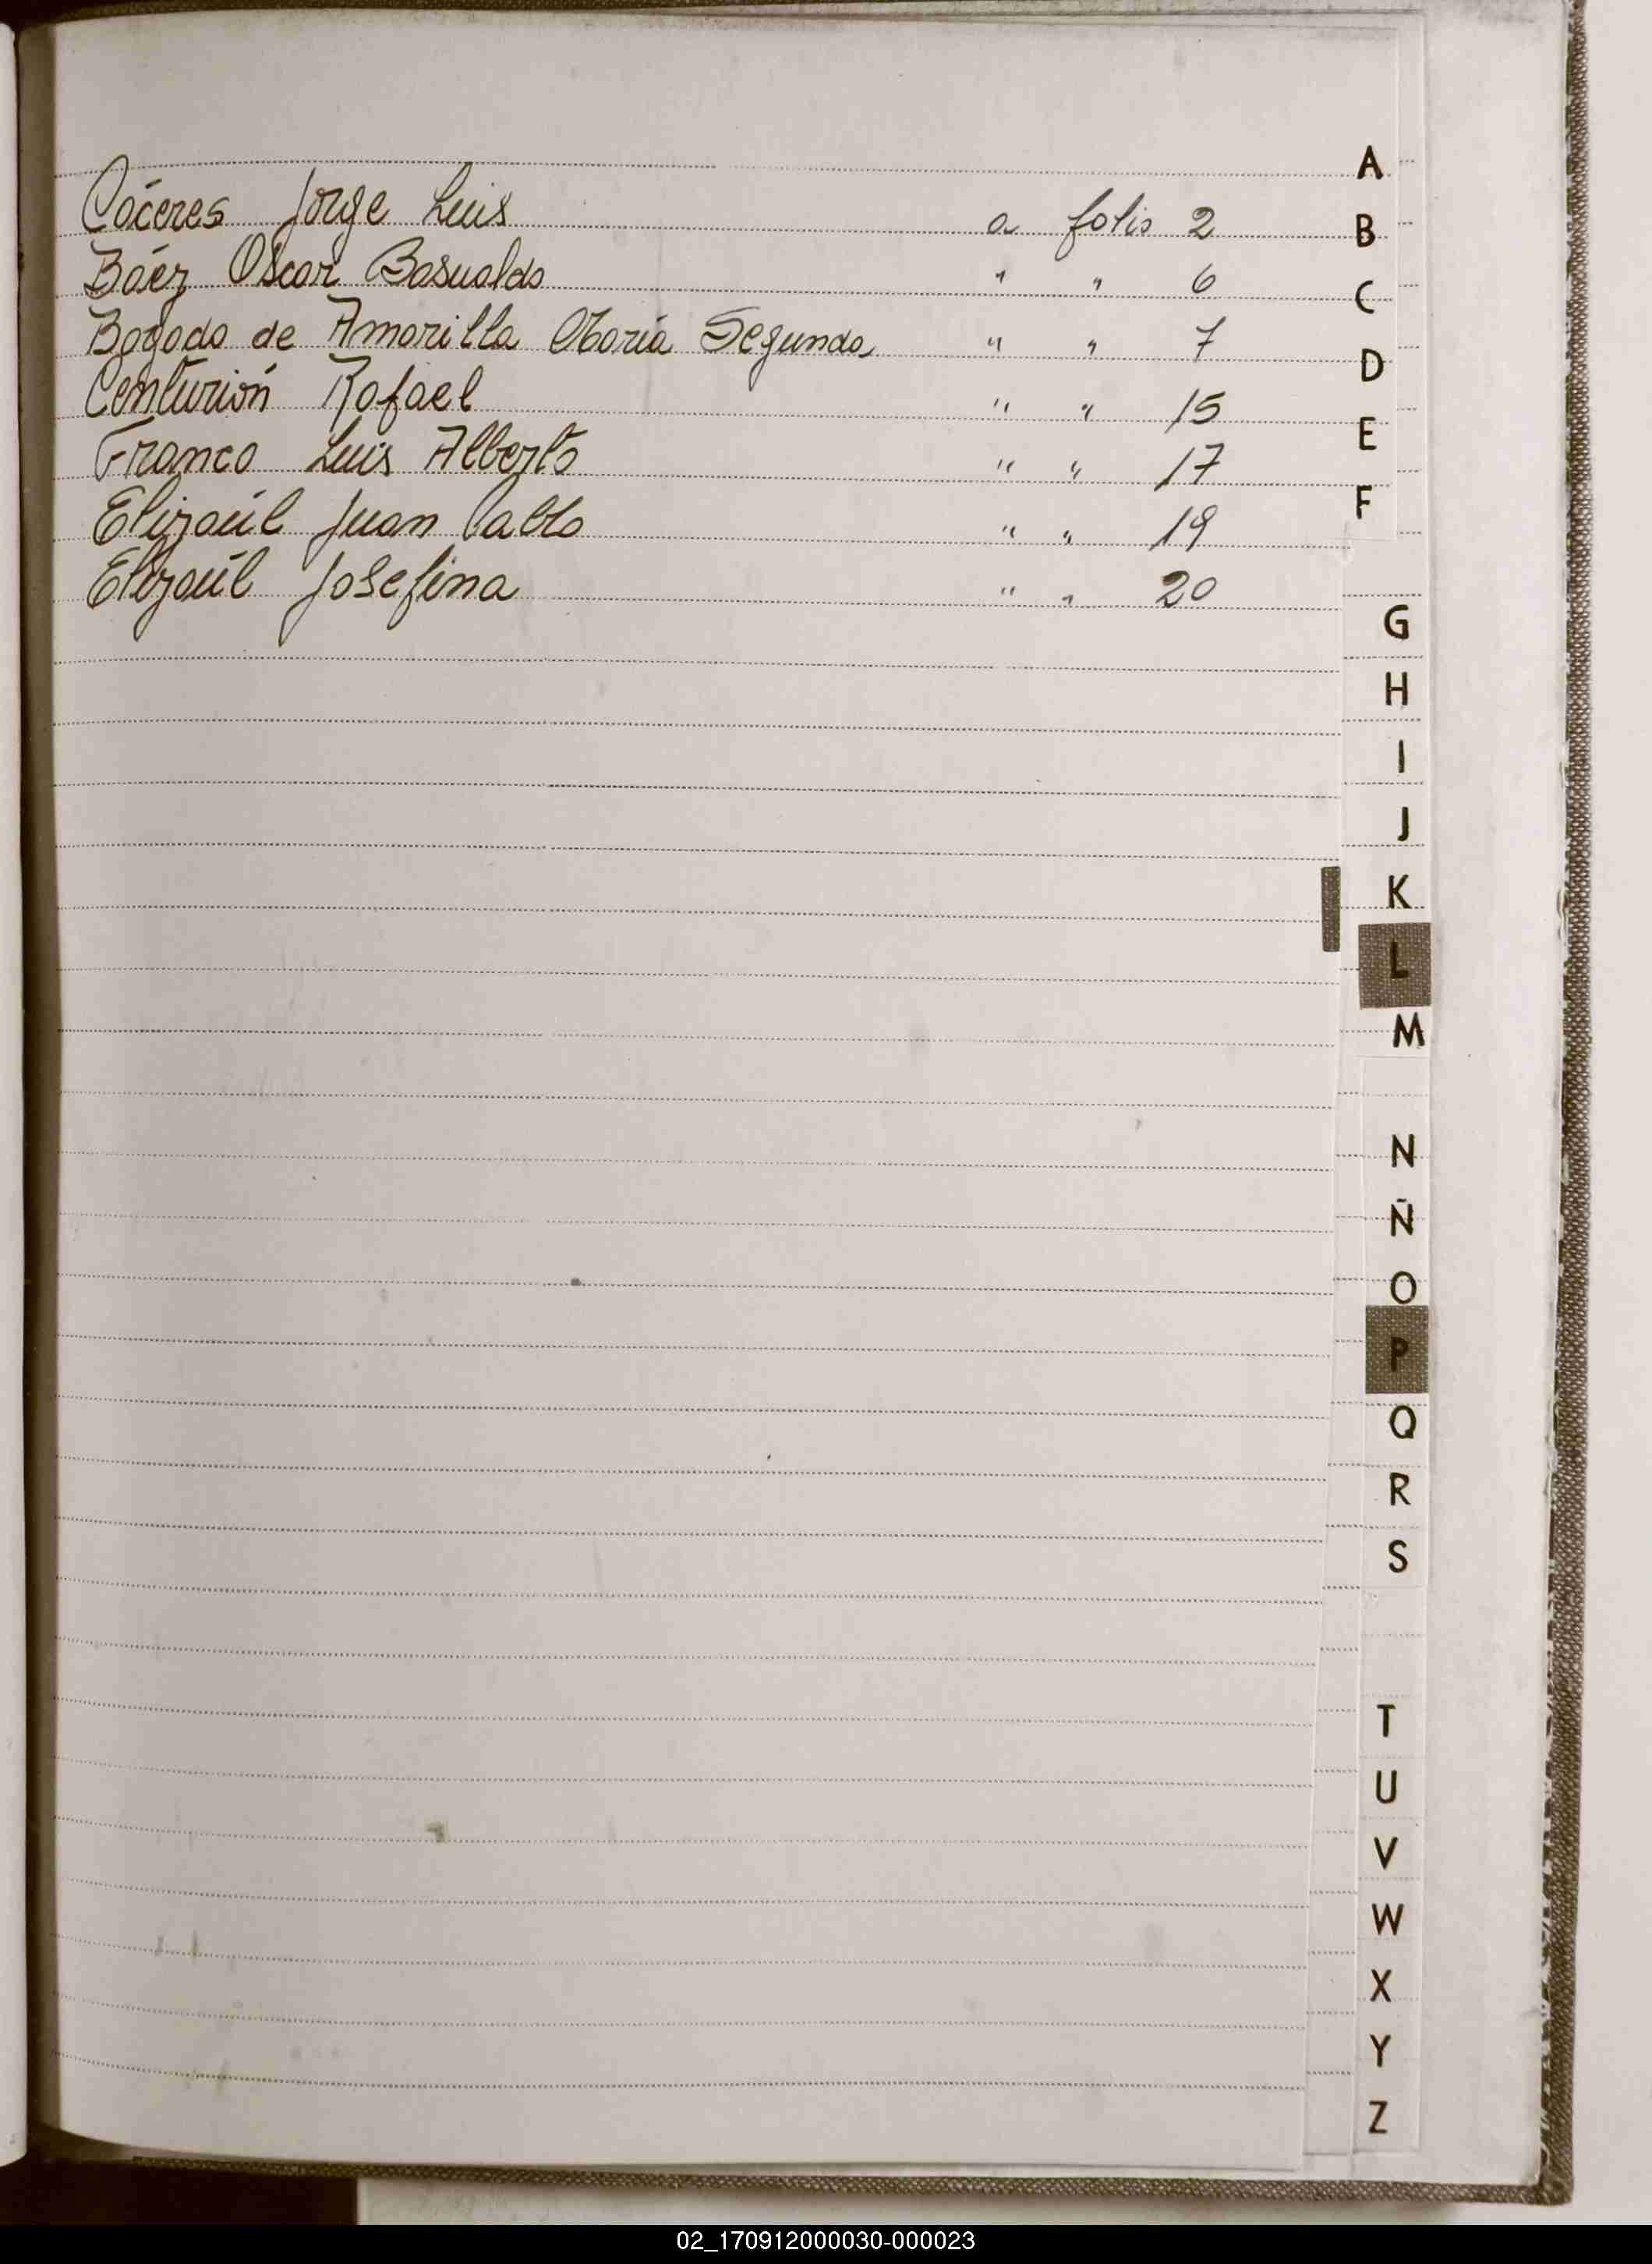 Cáceres Jorge Luis a folio 2
Báez Oscar Basualdo " " 6
Bogado de Amarilla María Segunda " " 7
Centurión Rafael " " 15
Franco Luis Alberto " " 17
Elizaúl Juan Pablo " " 19
Elizaúl Josefina " " 20
A
B
C
D
E
F
G
H
I
J
K
L
M
N
Ñ
O
P
Q
R
S
T
U
V
W
X
Y
Z
02_170912000030-000023